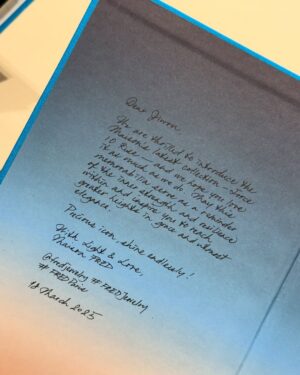 Dear Jiwon,
We are thrilled to introduce the
Maison's latest collection — Force
10 Rise — and we hope you love
it as much as we do. May this
memorabilia serve as a reminder
of the inner strength and resilience
within and inspire you to reach
greater heights in grace and utmost
elegance.
Precious icon, shine endlessly!
With Light & Love,
Maison FRED
@fredjewelry #FREDJewelry
#FREDParis
March 2025